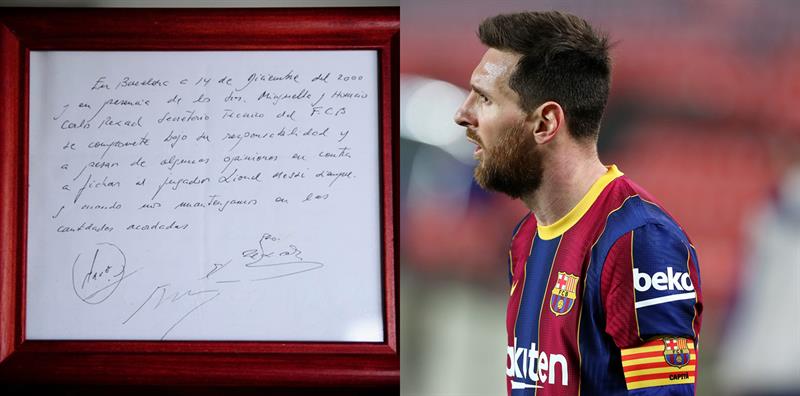 En Barcelona a 14 de Diciembre del 2000
y en presencia de los Sres. Minguella y Horacio
Carlo Rexach Secretario Tecnico del F.C.B
se compromete bajo su responsabilidad y
a pesar de algunas opiniones en contra
a fichar al jugador Lionel Messi siempre
y cuando nos mantengamos en las
cantidades acordadas
FCB
beko
Rakuten
CAPITÀ